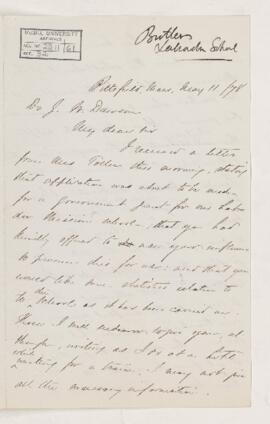 Butlers
Labrador School
McGILL UNIVERSITY
ARCHIVES
Pittsfield, Mass, May 11 /78
Dr J. W. Dawson
My dear Sir
I received a letter
from this morning, stating
that application was about to be made
for a government grant for our Labra
dor Mission school, that you had
kindly offered to use your influence
to procure this for us: and that you
would like some statistics relative to
the schools as it has been carried on.
These I will endeavor to give you, al
though, writing as I do at a hotel
while waiting for a train, I may not give
all the necessary information.